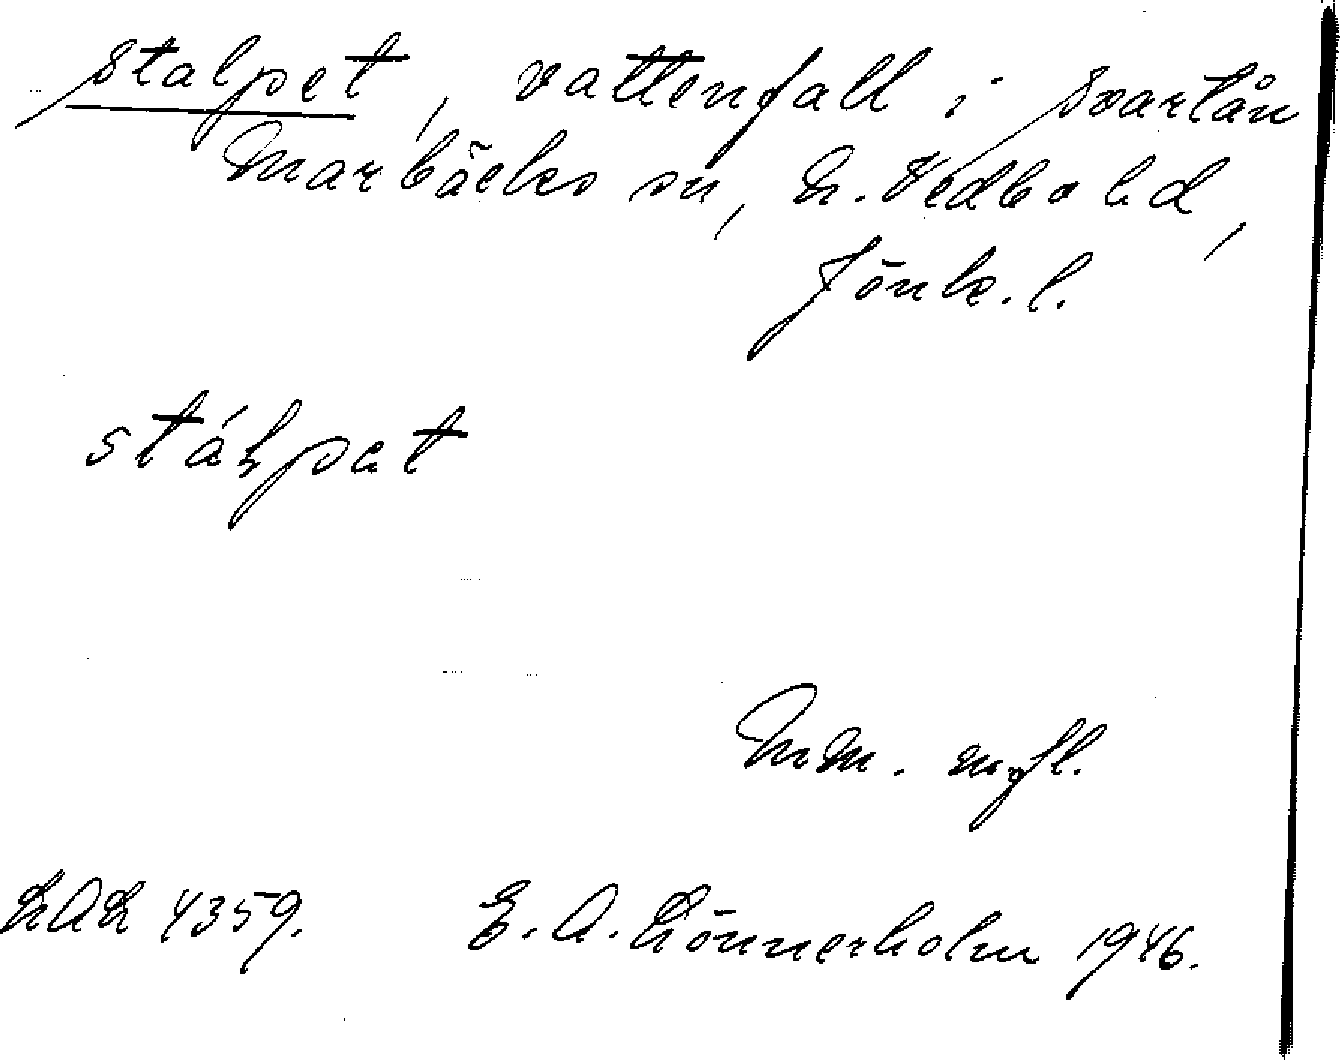 stalpet, vattenfall i Svartån
Marbäcks sn, N. Vedbo hd,
Jönk. l.
stáḷpet
m.fl.
LAL 4359. E. A. Lönnerholm 1946.